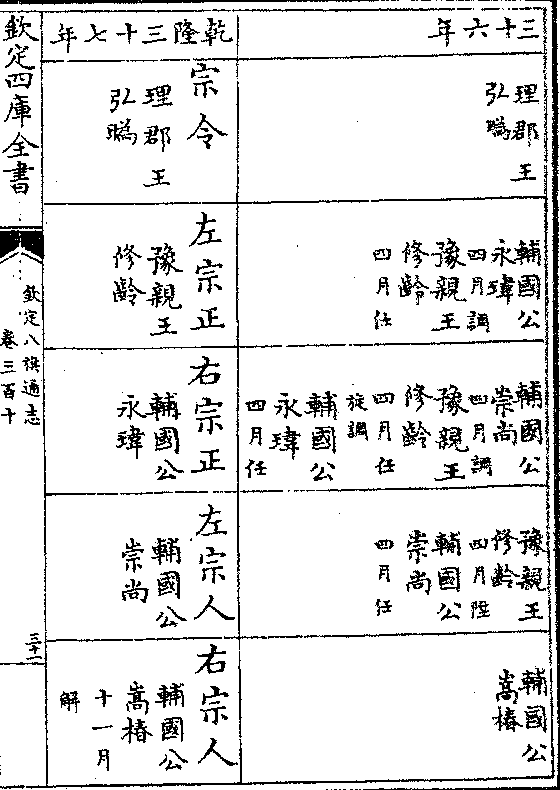 三十六年
理郡王
弘㬙
輔國公
永瑋
四月調
豫親王
修齡
四月任
輔國公
崇尚
四月調
豫親王
修齡
四月任
旋調
輔國公
永瑋
四月任
豫親王
修齡
四月陞
輔國公
崇尚
四月任
輔國公
嵩椿
乾隆三十七年
宗令
理郡王
弘㬙
左宗正
豫親王
修齡
右宗正
輔國公
永瑋
左宗人
輔國公
崇尚
右宗人
輔國公
嵩椿
十一月
解
欽定四庫全書
欽定八旗通志
卷三百十